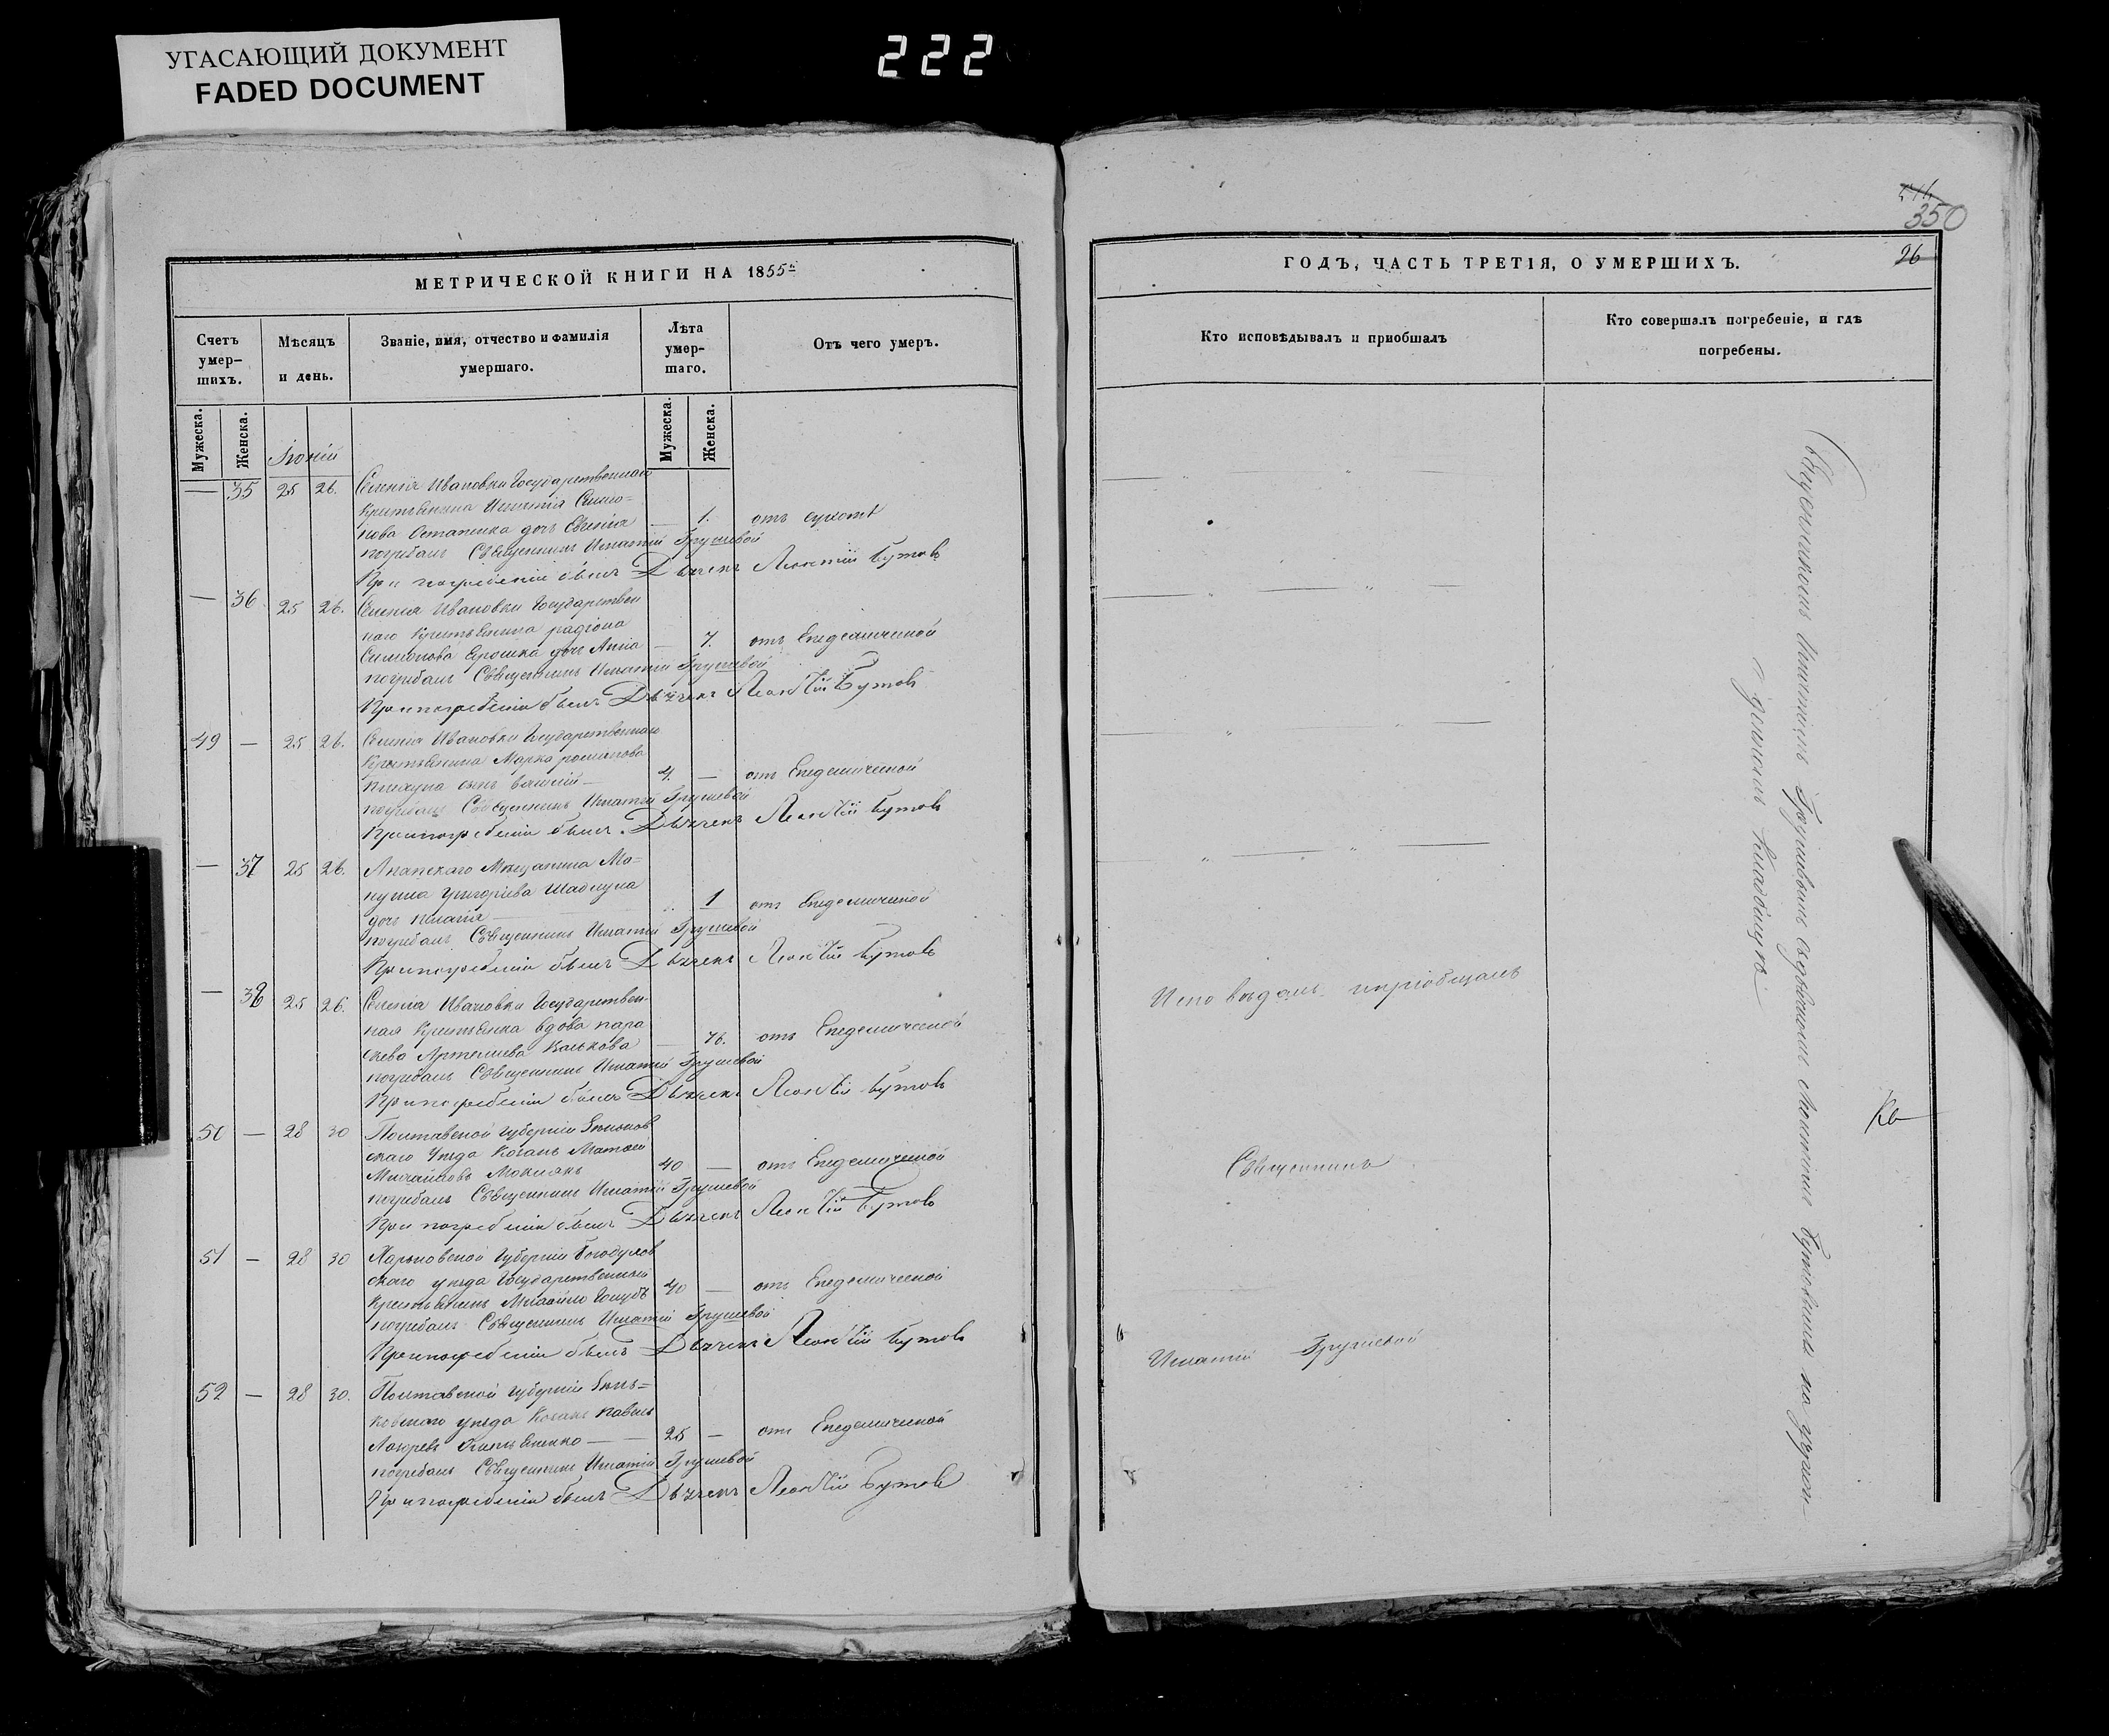 УГАСАЮЩИЙ ДОКУМЕНТ
FADED DOCUMENT
222
350
26
МЕТРИЧЕСКОЙ КНИГИ НА 1855
Счетъ умер-шихъ.
Мѣсяцъ и день.
Званіе, имя, отчество и фамилія умершаго.
Лѣта умер-шаго.
Отъ чего умеръ.
Мужеска.
Женска.
Мужеска.
Женска.
Іюній
— 35 25 26. Селенія Ивановки Государственнаго
Крестьянина Игнатія Симо=
нова Остапенка дочь Евгенія — 1. отъ сухотъ
погребалъ Священникъ Игнатій Грушевой
При погребеніи былъ Дьячекъ Леонтій Бутовъ
— 36 25 26. Селенія Ивановки Государствен
наго Крестьянина радіона
Симонова Ерошка дочь Анна — 7. отъ Епедемической
погребалъ Священникъ Игнатій Грушевой
При погребеніи былъ Дьячекъ Леонтій Бутовъ
49 — 25 26. Селенія Ивановки Государственнаго
Крестьянина Марка романова
сынъ Василій — 4. — отъ Епедемической
погребалъ Священникъ Игнатій Грушевой
При погребеніи былъ Дьячекъ Леонтій Бутовъ
— 37 25 26. Анапскаго Мѣщанина Ма=
григоріева
дочь 1 отъ Епедемической
погребалъ Священникъ Игнатій Грушевой
При погребеніи былъ Дьячекъ Леонтій Бутовъ
— 38 25 26. Селенія Ивановки Государствен
ная Крестьянка вдова пара
скева Артемиева — 76. отъ Епедемической
погребалъ Священникъ Игнатій Грушевой
При погребеніи былъ Дьячекъ Леонтій Бутовъ
50 — 28 30 Полтавской Губерніи Зеньков
скаго Уѣзда Козакъ
Михайловъ 40 — отъ Епедемической
погребалъ Священникъ Игнатій Грушевой
При погребеніи былъ Дьячекъ Леонтій Бутовъ
51 — 28 30 Харьковской Губерніи Богодухов
скаго уѣзда Государственный
Крестьянинъ Михайло 40 — отъ Епедемической
погребалъ Священникъ Игнатій Грушевой
При погребеніи былъ Дьячекъ Леонтій Бутовъ
52 — 28 30. Полтавской Губерніи Зень=
ковскаго уѣзда Козакъ Павелъ
25 — отъ Епедемической
погребалъ Священникъ Игнатій Грушевой
При погребеніи былъ Дьячекъ Леонтій Бутовъ
ГОДЪ, ЧАСТЬ ТРЕТІЯ, О УМЕРШИХЪ.
Кто исповѣдывалъ и пріобщалъ
Кто совершалъ погребеніе, и гдѣ погребены.
Исповѣдалъ и пріобщалъ
Священникъ
Игнатій Грушевой
Священникомъ Игнатіемъ Грушевымъ съ дьячкомъ Леонтіемъ Бутовымъ на приход-
скомъ Кладбищѣ